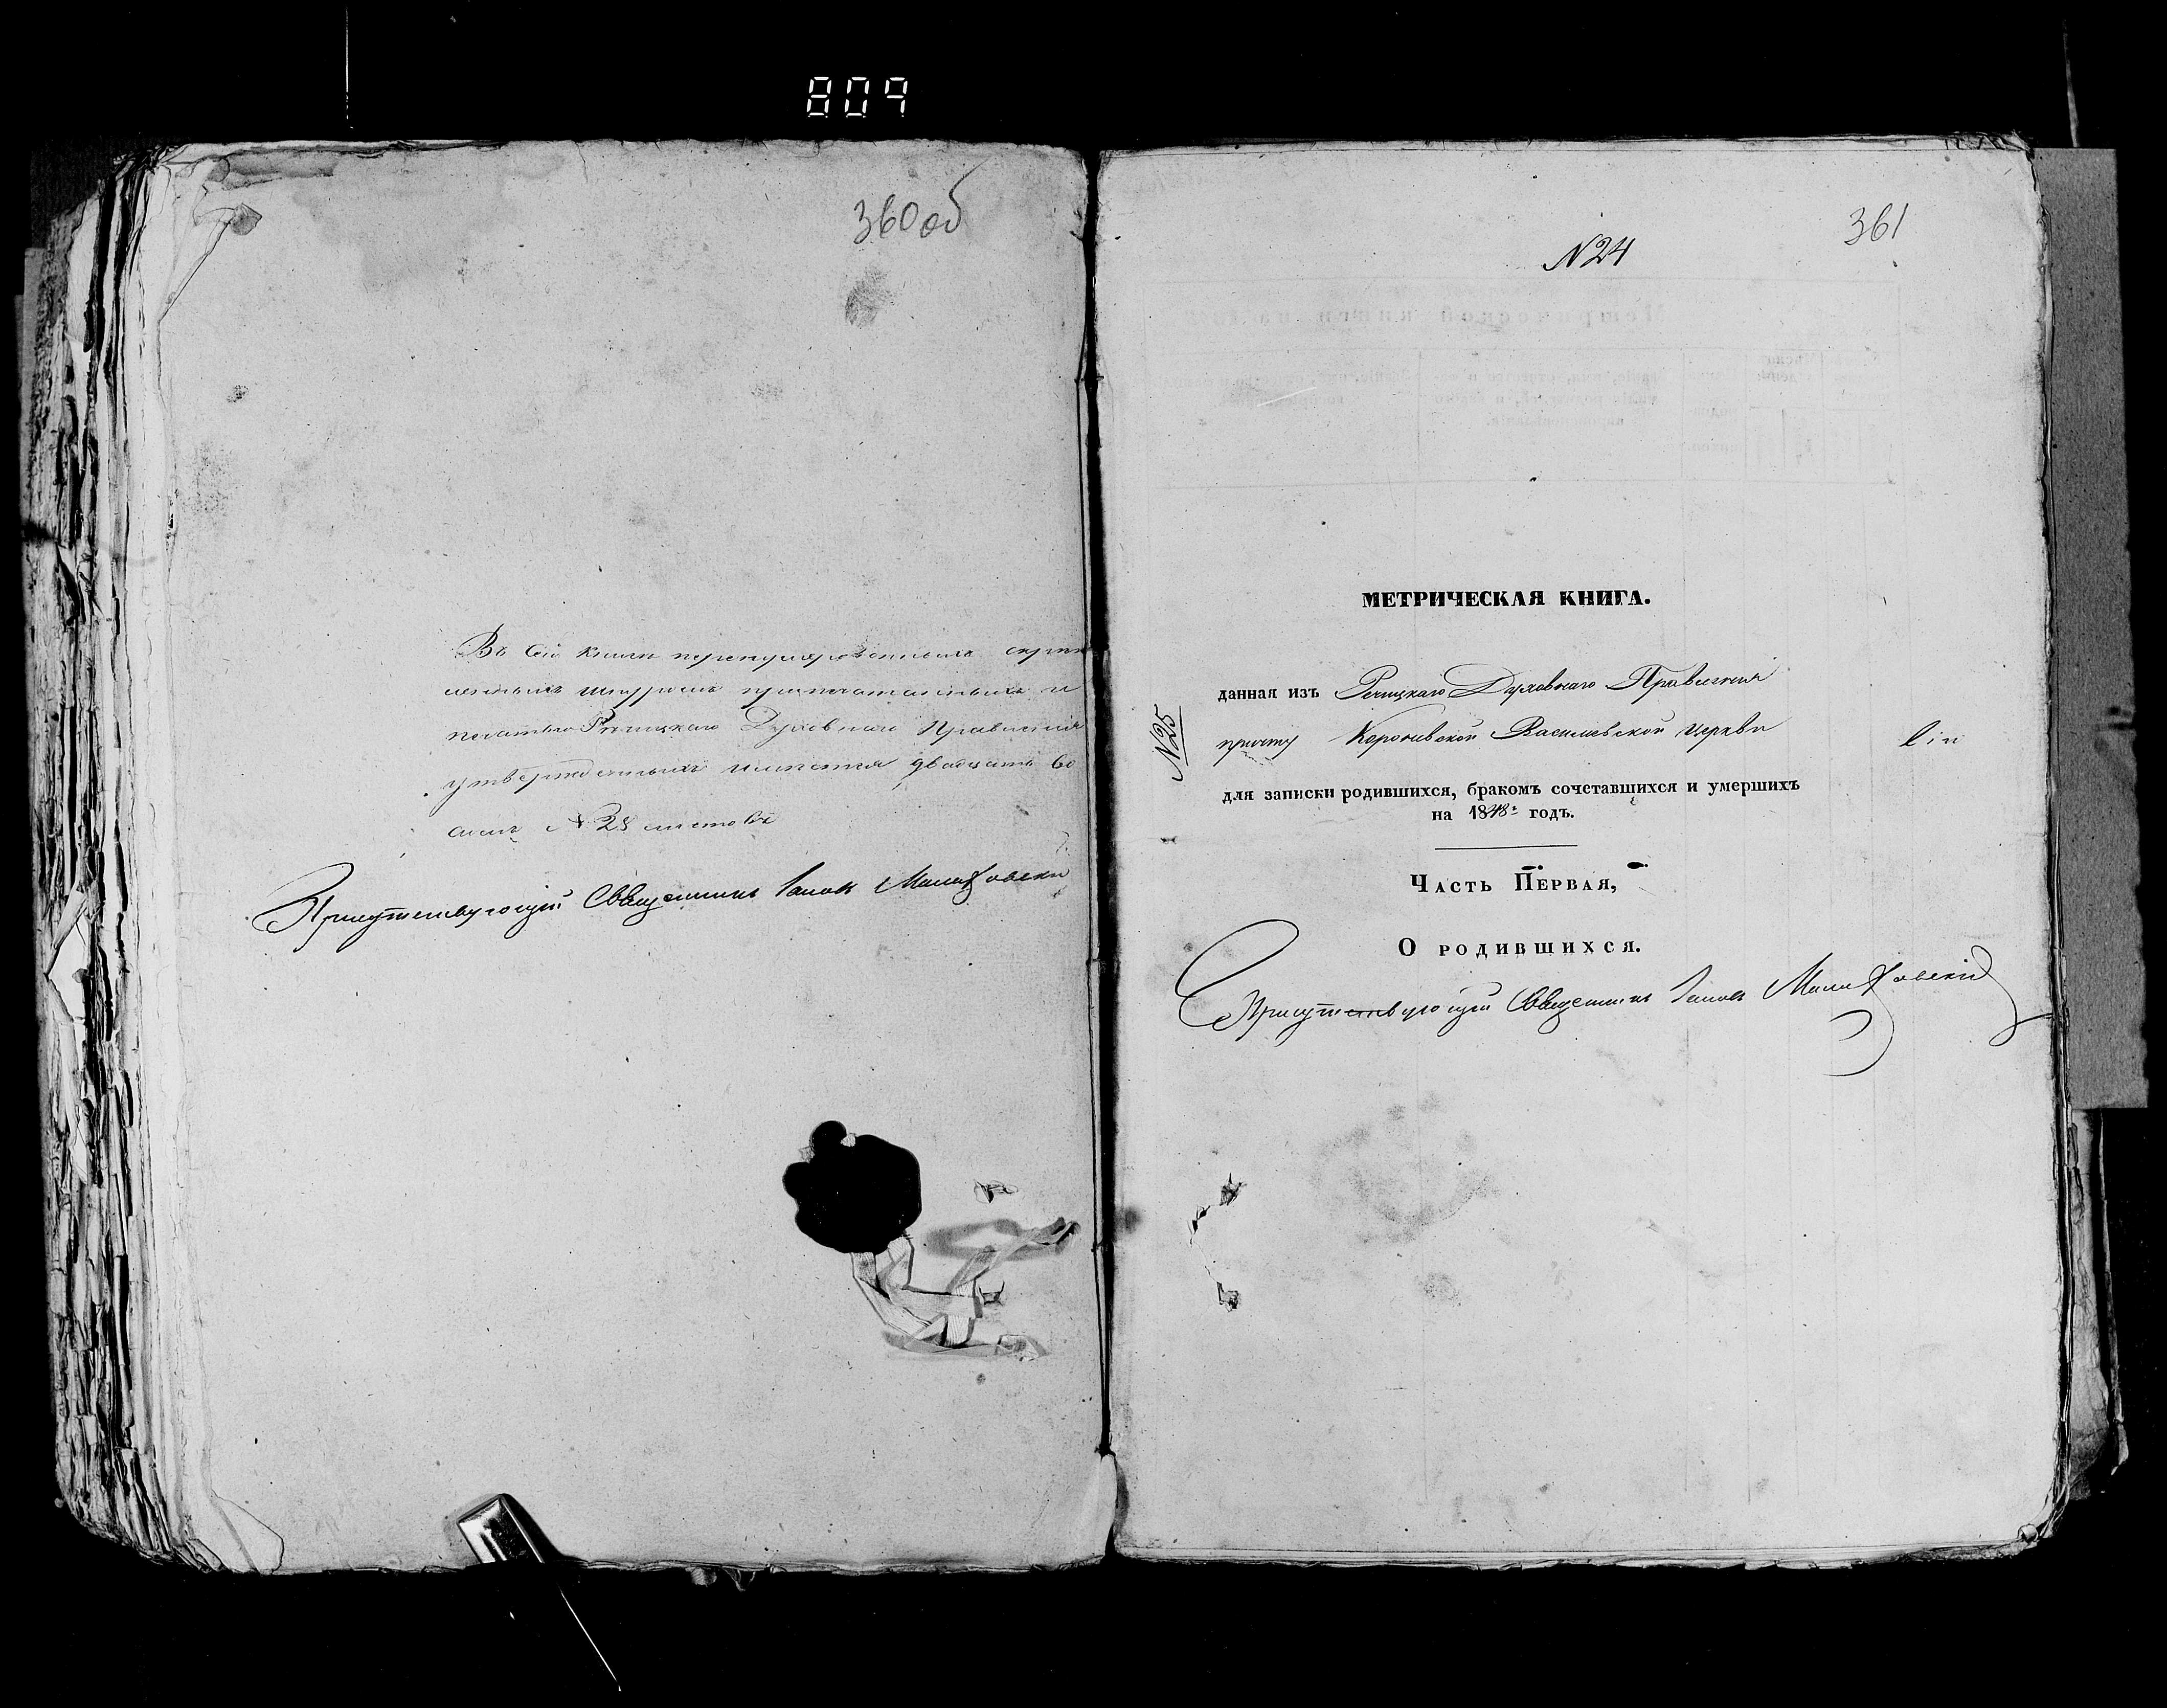 809
360 об
Въ сей книгѣ перенумерованныхъ скрѣп
леныхъ шнуромъ припечатанныхъ и
печатью Речицкаго Духовнаго Правленія
утвержденныхъ имѣется двадцать во
семь № 28 листовъ
Присутствующій Священникъ Малиховски
361
№ 24
МЕТРИЧЕСКАЯ КНИГА.
данная изъ Речицкаго Духовнаго Правленія
№ 25
причту Васильевской церкви
для записки родившихся, бракомъ сочетавшихся и умершихъ
на 1848 годъ.
Часть Первая,
О родившихся.
Присутствующій Священникъ Малиховскій